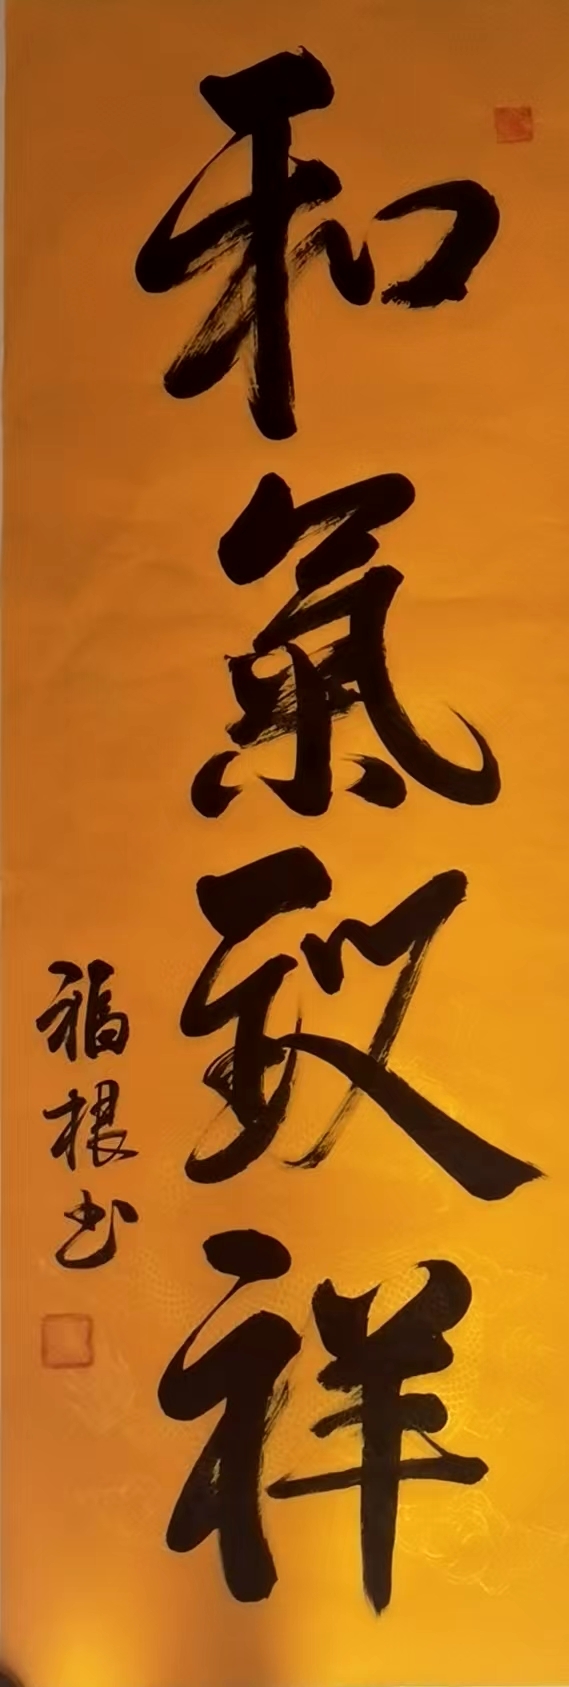 和氣致祥
福根书